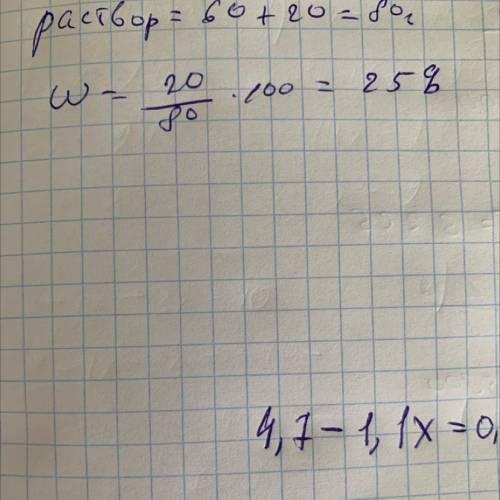 раствор = 60 + 20 = 80г
W = 20/80 · 100 = 25%
4,7 - 1,1x = 0,